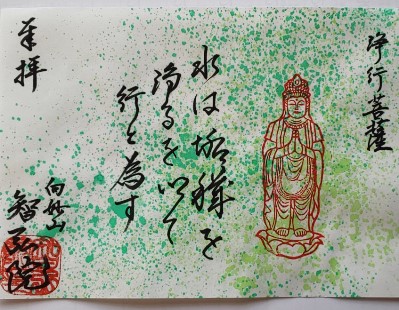 浄行菩薩
水は垢穢を
浄るを以て
行と為す
奉拝
向山
智院